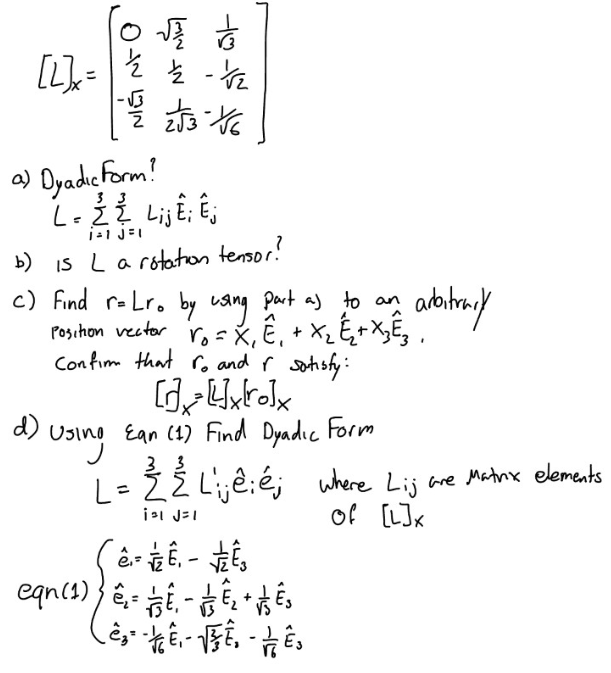 [L]ₓ = [ 0 √3/2 1/√3
1/2 1/2 -1/√2
-√3/2 1/2√3 -1/√6 ]
a) Dyadic Form?
L = Σ³ᵢ₌₁ Σ³ⱼ₌₁ Lij Êi Êj
b) is L a rotation tensor?
c) Find r = Lr₀ by using part a) to an arbitrary
position vector r₀ = X₁Ê₁ + X₂Ê₂ + X₃Ê₃ .
Confirm that r₀ and r satisfy:
[r]ₓ = [L]ₓ[r₀]ₓ
d) Using Eqn (1) Find Dyadic Form
L = Σ³ᵢ₌₁ Σ³ⱼ₌₁ L'ij êi êj where Lij are Matrix elements
of [L]ₓ
eqn(1) { ê₁ = 1/√2 Ê₁ - 1/√2 Ê₃
ê₂ = 1/√3 Ê₁ - 1/√3 Ê₂ + 1/√3 Ê₃
ê₃ = -1/√6 Ê₁ - √2/3 Ê₂ - 1/√6 Ê₃